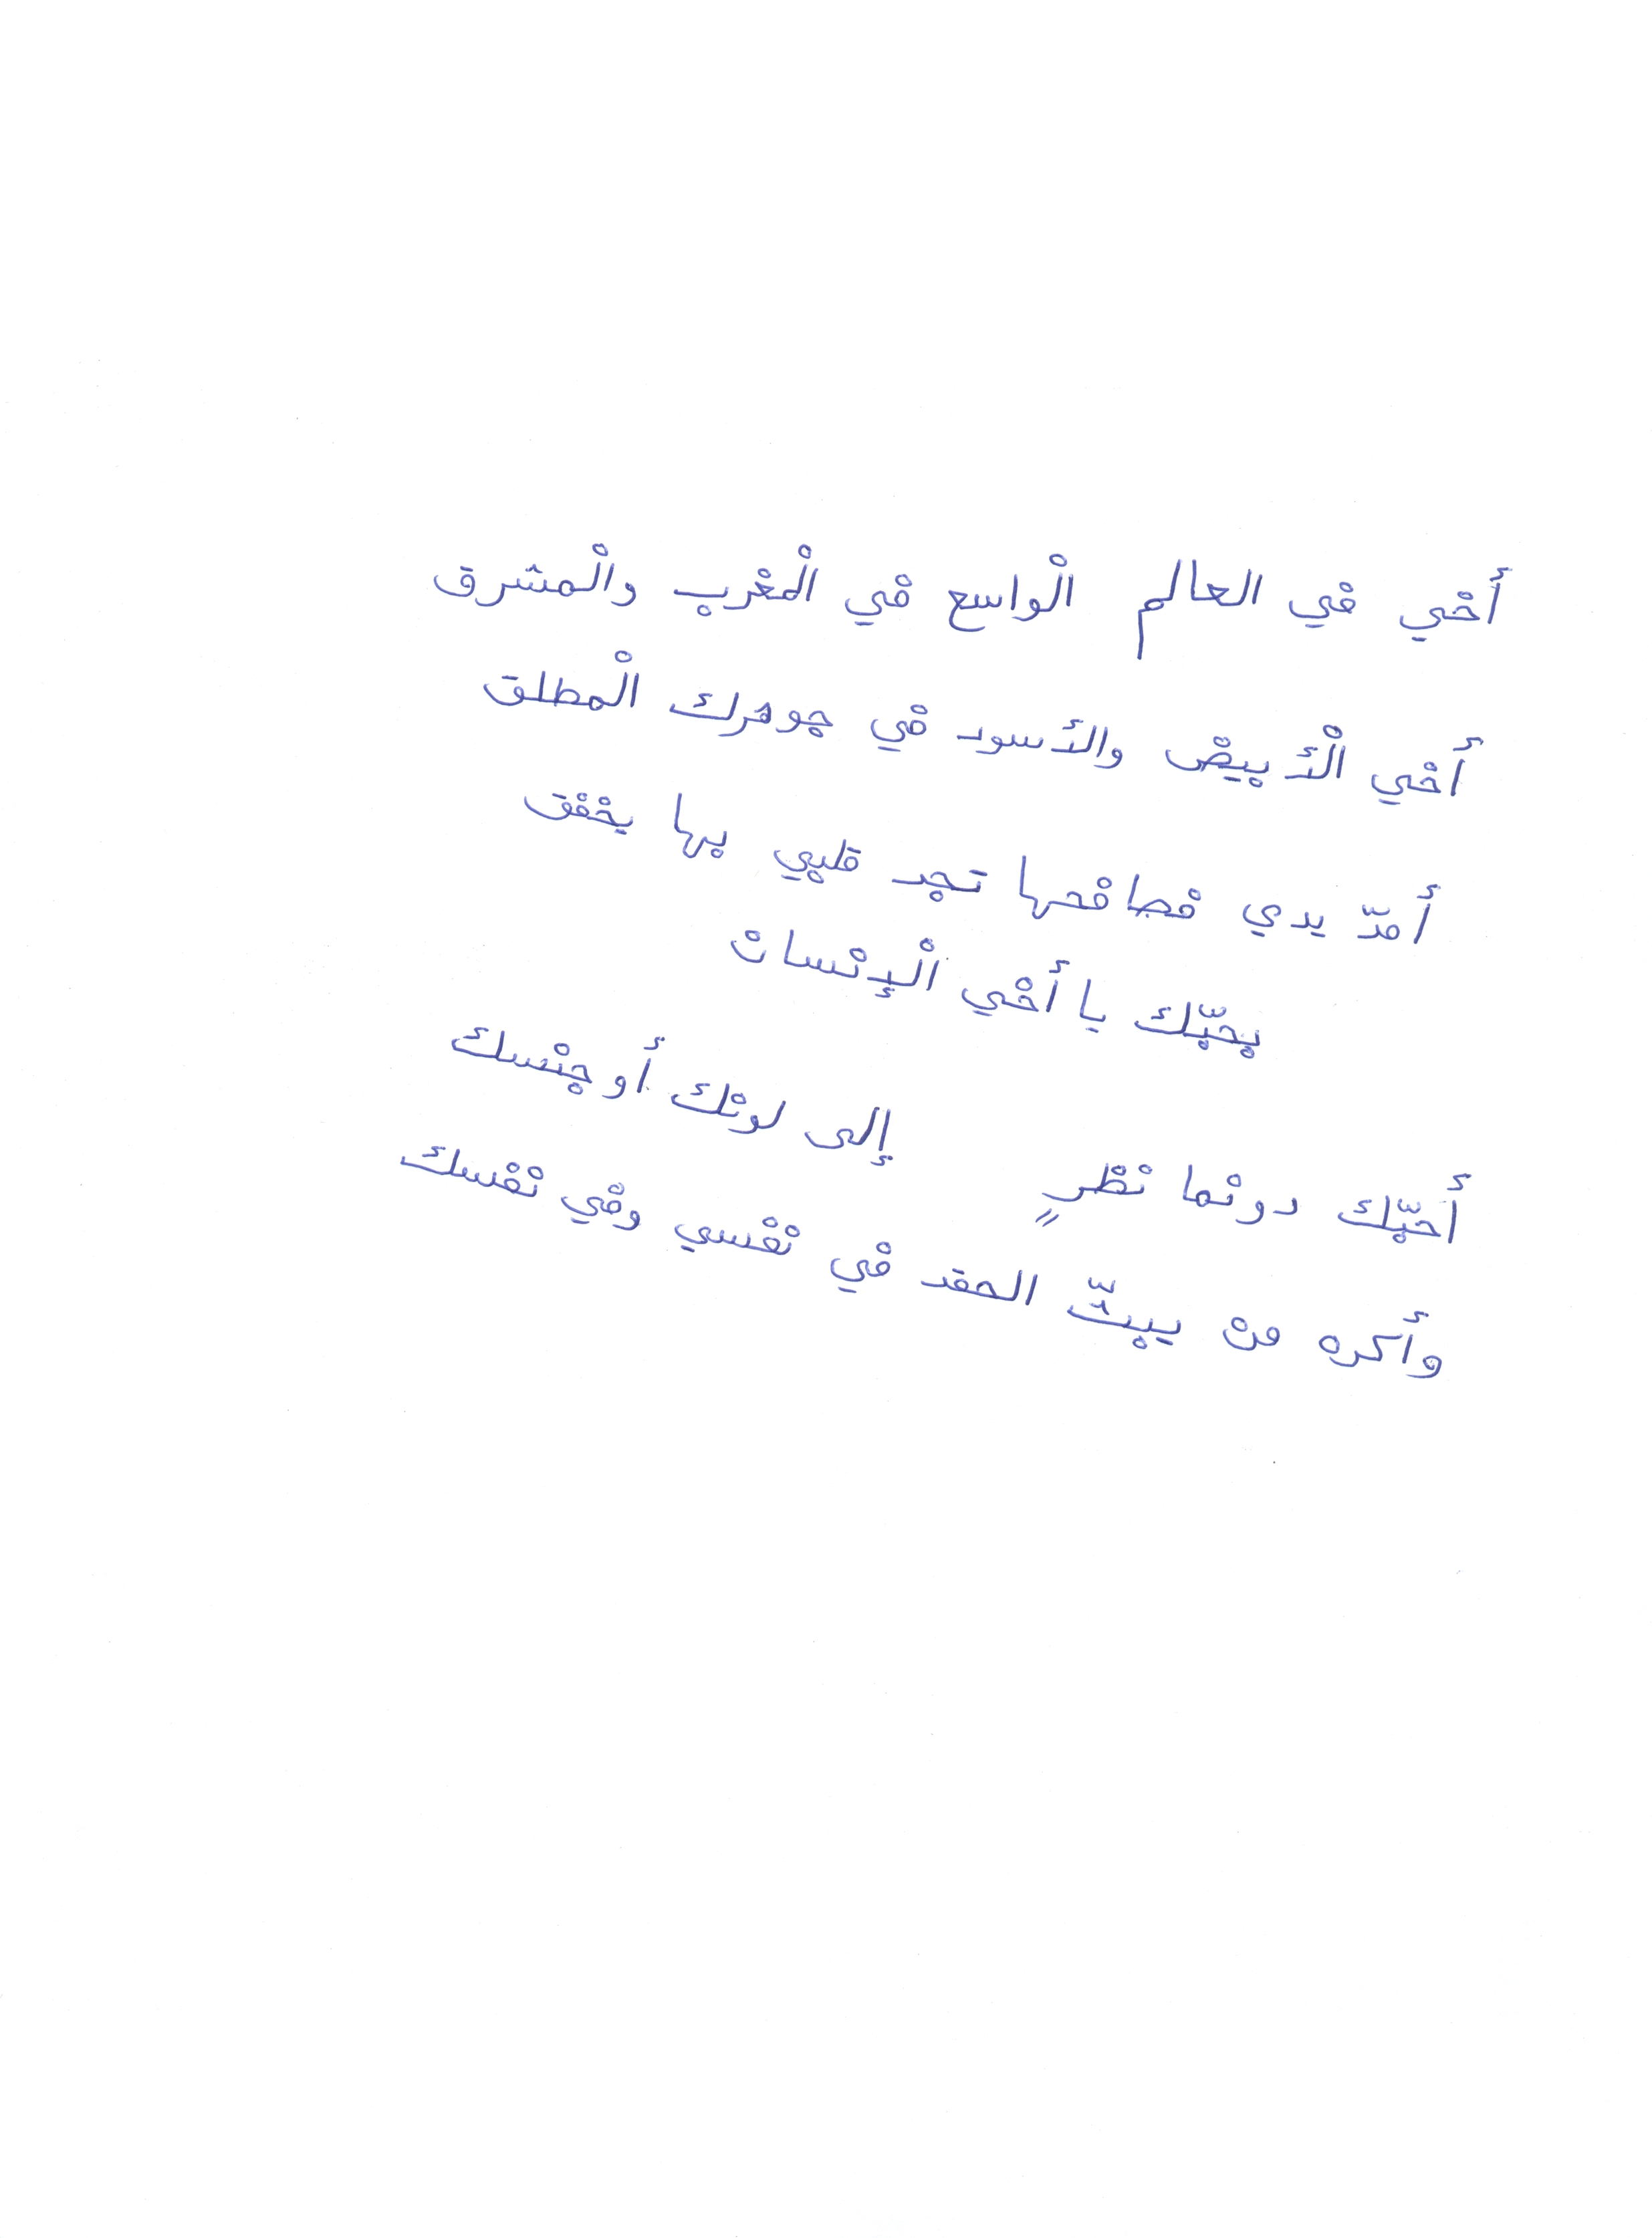 أخي في العالم الْواسع في الْمغرب والْمشرق
أخي الْأبيض والأسود في جوهرك الْمطلق
أمدّ يدي فصافحها تجد قلبي بها يخفق
بحبّك يا أخي الْإنسان
أحبّك دونما نظرٍ إلى لونك أو جنسك
وأكره من يبثّ الحقد في نفسي وفي نفسك